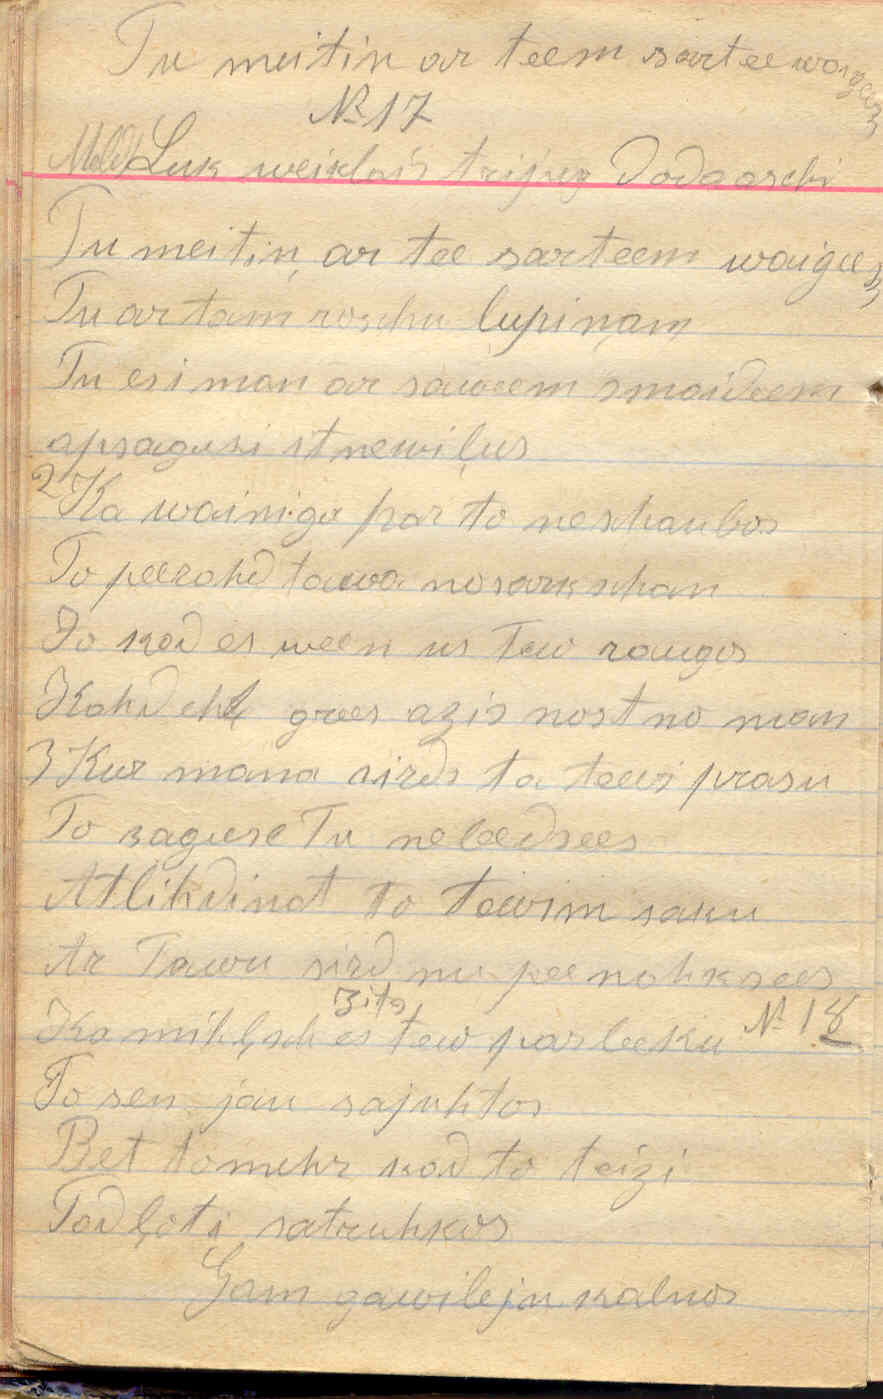 Tu meitin ar teem sartee waigeem
№ 17
Meld Luk weiklais trijreg dodaaschi
Tu meitin, ar tee sarteem waigeem
Tu ar tam roschu lupinam,
Tu esi man ar saweem smaideem
apsagusi it newiļus
2 Ka wainiga par to neschaubos
To peerahd tawa nosarkschan
Jo kad es ween us Tew raugos
Kahdehļ grees azis nost no man
3 Kur mana sirds ta tewi prasu
To zaguse Tu neleedsees
Atlihdinat to tewim saku
Ar Tawu sird nu peenahksees
Zits
Ka mihļsch es tew par leeku № 18
To sen jau sajuhtos
Bet tomehr kad to teizi
Tad ļoti satruhkos
Gam gawileju kalnos